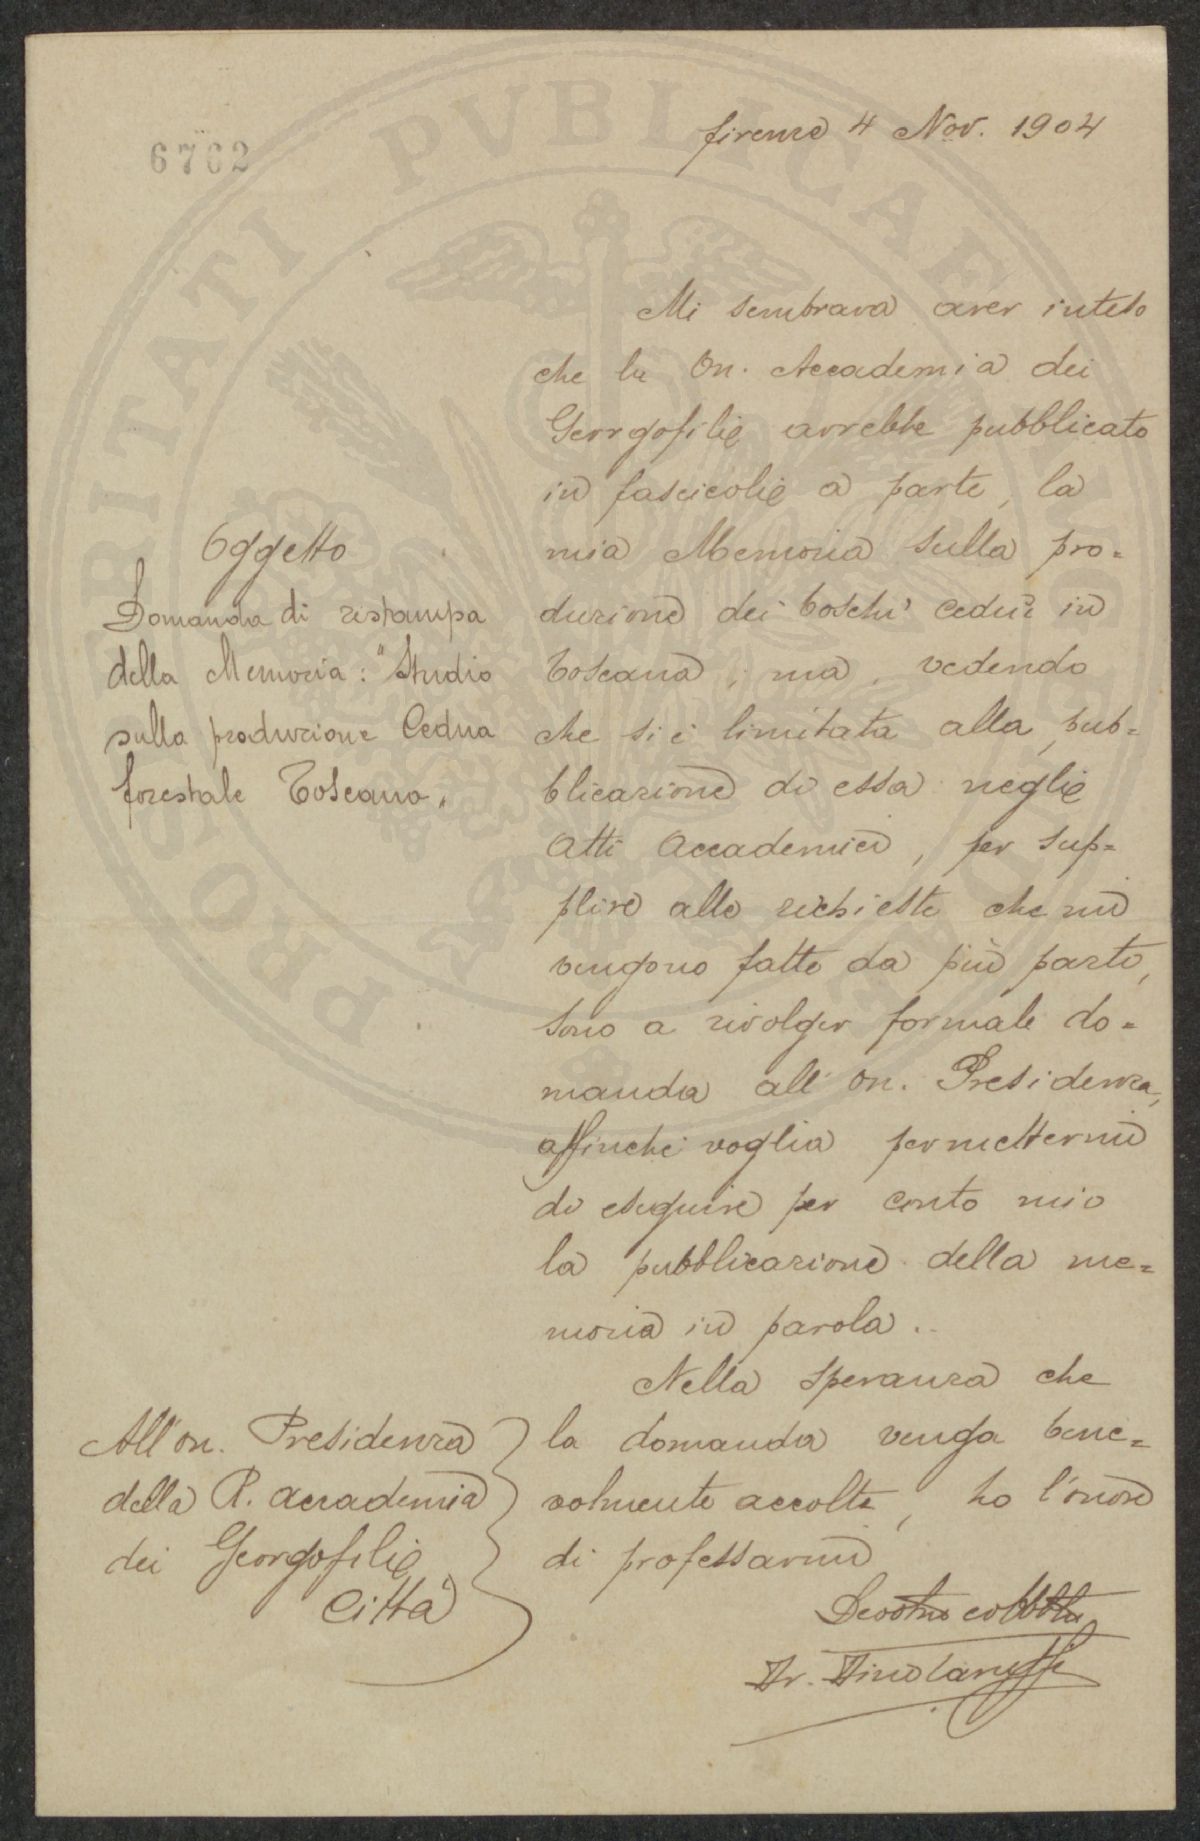 6762
Firenze 4 Nov. 1904
Mi sembrava aver inteso
che la On. Accademia dei
Georgofili avrebbe pubblicato
in fascicoli a parte, la
mia Memoria sulla pro=
duzione dei boschi cedui in
Toscana; ma, vedendo
che si è limitata alla pub=
blicazione di essa negli
Atti Accademici, per sup=
plire alle richieste che mi
vengono fatte da più parti,
sono a rivolger formale do=
manda all' on. Presidenza,
affinchè voglia permettermi
di eseguire per conto mio
la pubblicazione della me=
moria in parola.
Nella speranza che
la domanda venga bene=
volmente accolta, ho l'onore
di professarmi
Oggetto
Domanda di ristampa
della Memoria: "Studio
sulla produzione Cedua
forestale Toscana"
All'on. Presidenza
della R. Accademia
dei Georgofili
Città
PROSPERITATI PVBLICAE